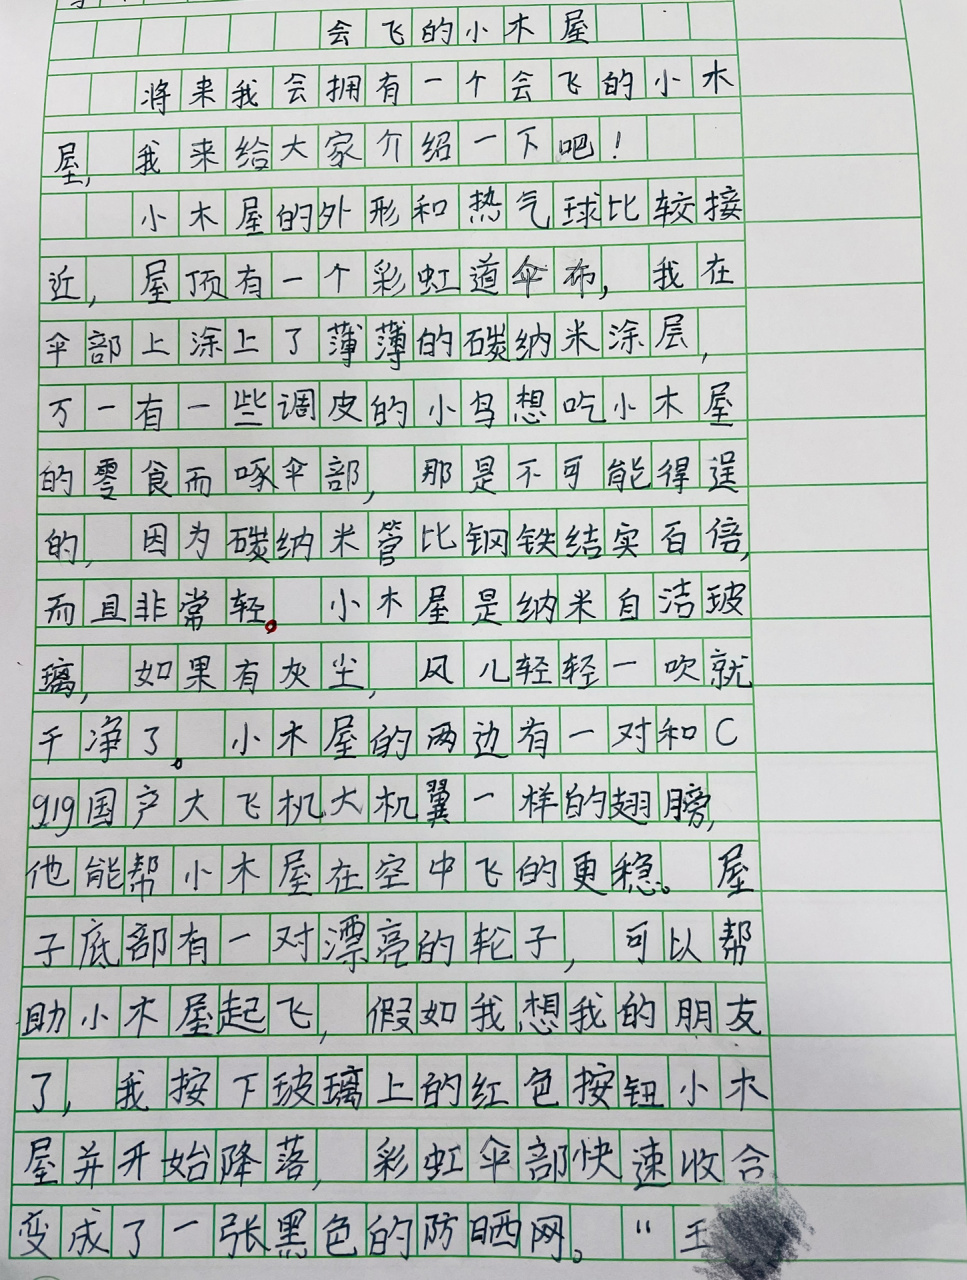 会飞的小木屋
将来我会拥有一个会飞的小木
屋，我来给大家介绍一下吧！
小木屋的外形和热气球比较接
近，屋顶有一个彩虹道伞布，我在
伞部上涂上了薄薄的碳纳米涂层，
万一有一些调皮的小鸟想吃小木屋
的零食而啄伞部，那是不可能得逞
的，因为碳纳米管比钢铁结实百倍，
而且非常轻。小木屋是纳米自洁玻
璃，如果有灰尘，风儿轻轻一吹就
干净了。小木屋的两边有一对和C
919国产大飞机大机翼一样的翅膀，
他能帮小木屋在空中飞的更稳。屋
子底部有一对漂亮的轮子，可以帮
助小木屋起飞，假如我想我的朋友
了，我按下玻璃上的红色按钮小木
屋并开始降落，彩虹伞部快速收合
变成了一张黑色的防晒网。“王